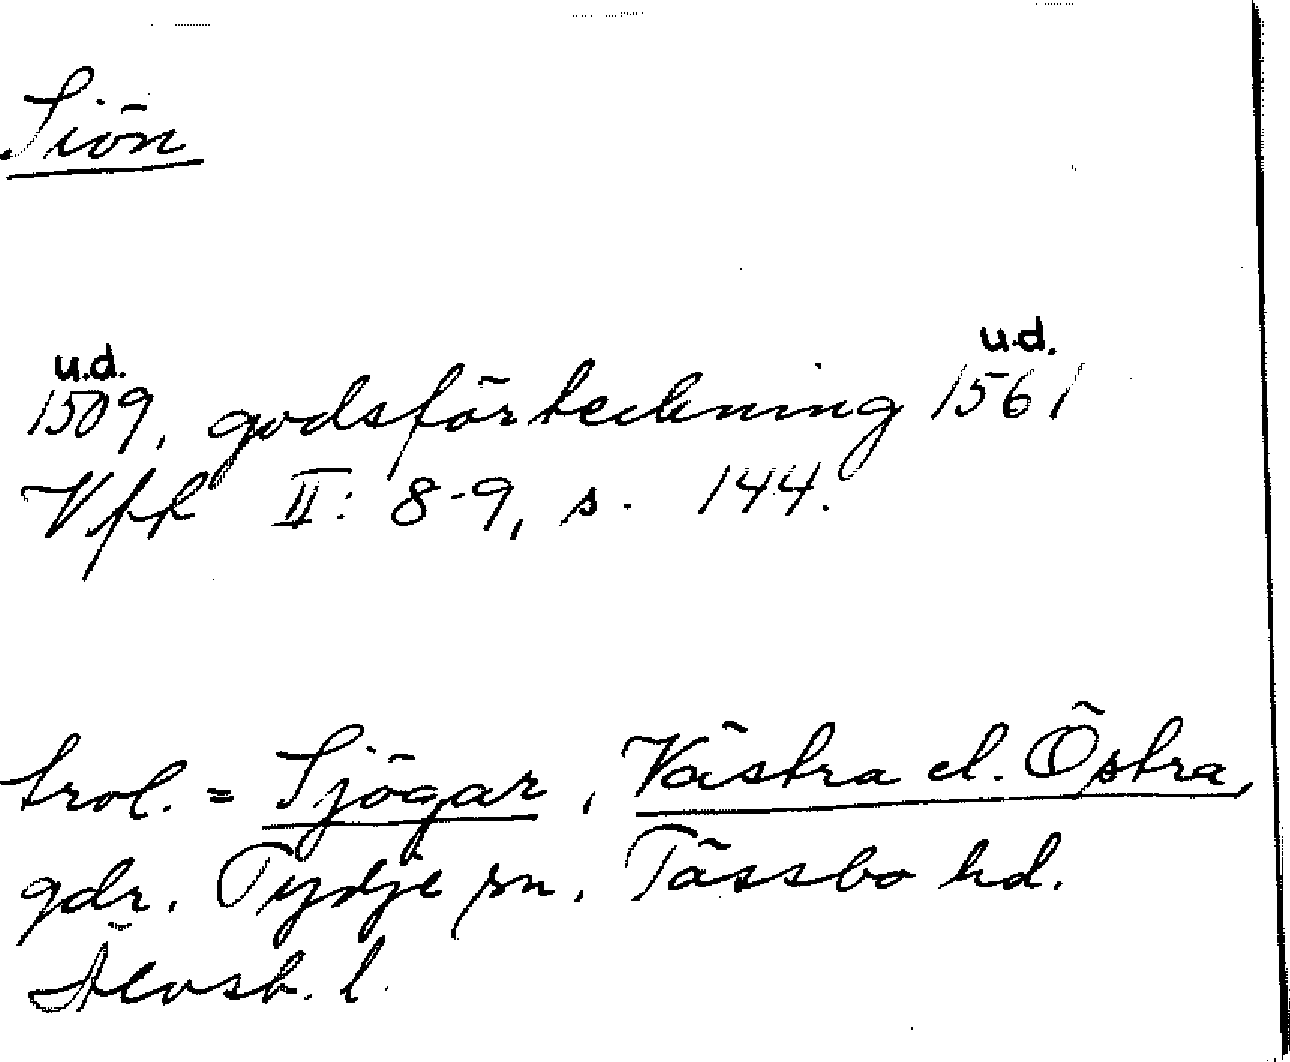 Siön
u.d. u.d.
1509, godsförteckning 1561
Vfk II: 8-9, s. 144.
trol. = Sjögar, Västra el. Östra,
gdr. Tydje sn. Tössbo hd.
Älvsb. l.